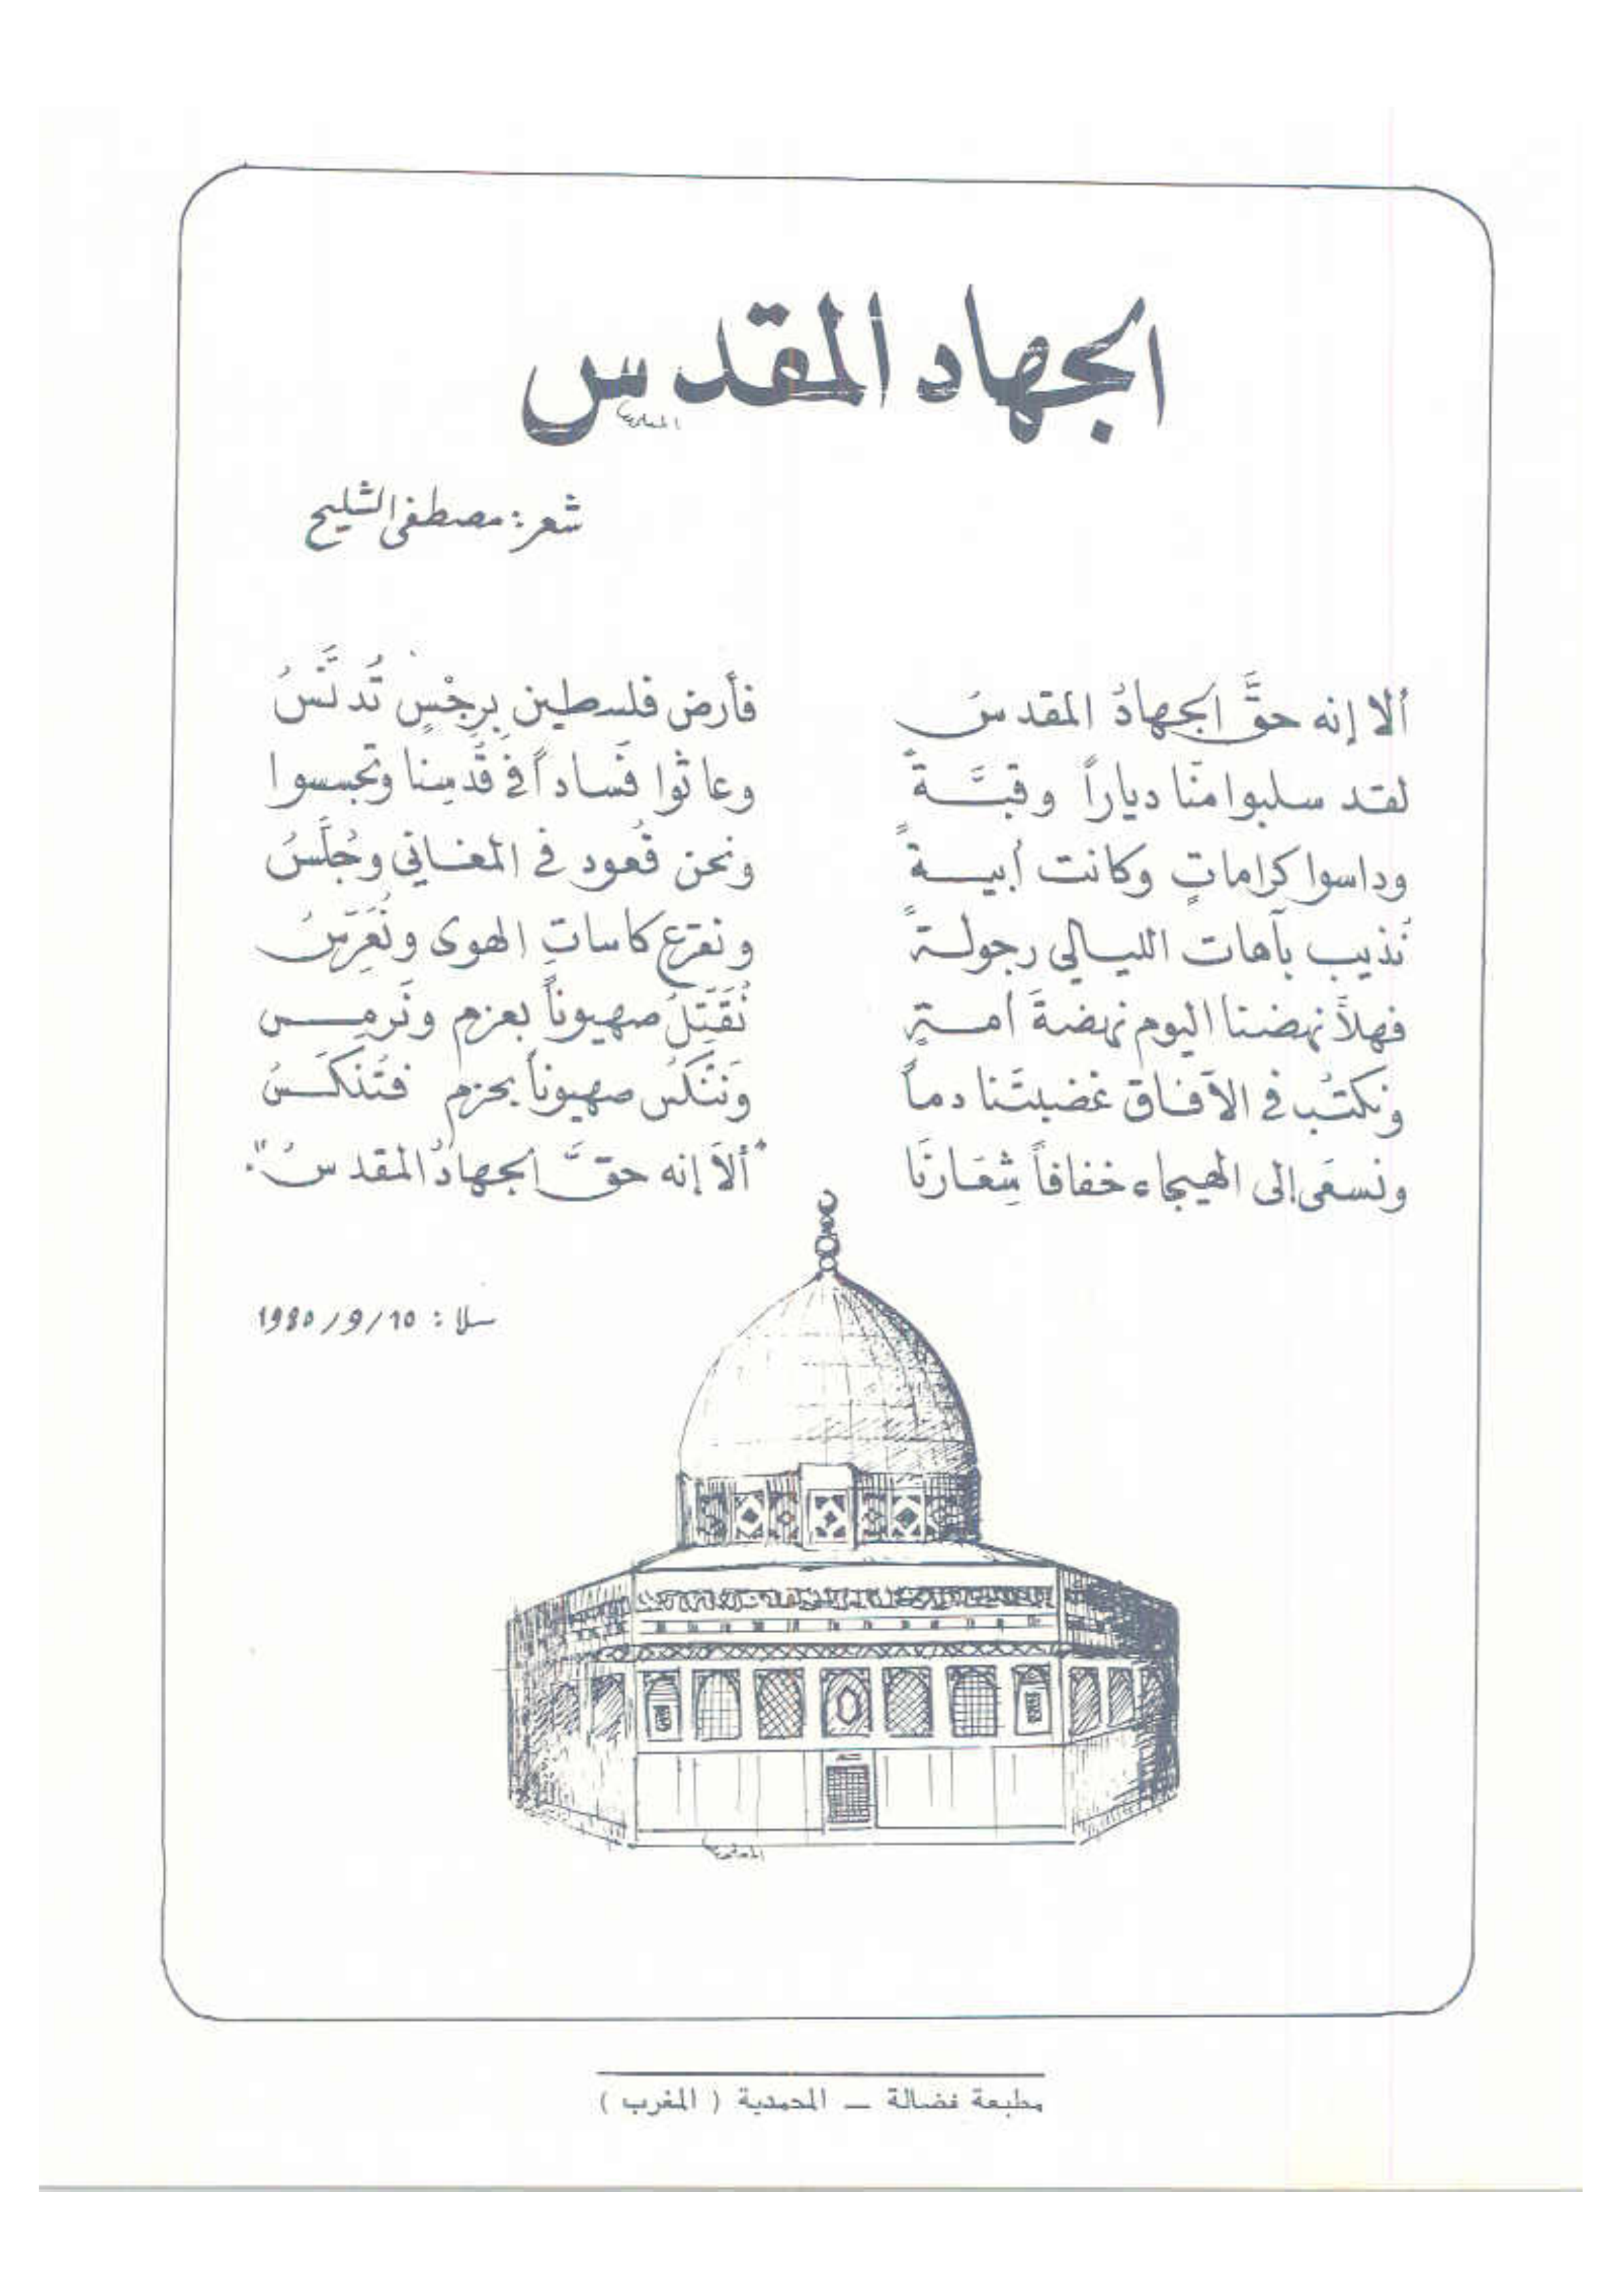 الجهاد المقدس
شعر: مصطفى الشليح
ألا إنه حقَّ الجهادُ المقدسُ فأرض فلسطين بِرِجْسٍ تُدنَّسُ
لقد سلبوا منّا دياراً وقبَّةً وعاثوا فَساداً في قُدسِنا وتجسسوا
وداسوا كراماتٍ وكانت أبيةً ونحن قُعود في المغاني وجُلَّسُ
نُذيب بآهات الليالي رجولةً ونقرع كاساتِ الهوى ونُعَرِّسُ
فهلاَّ نهضنا اليوم نهضةَ أمةٍ نُقَتِّلُ صهيوناً بعزم ونَرمِس
ونكتُب في الآفاق غضبتَنا دماً ونُنَكِّس صهيوناً بحزم فتُنكَسُ
ونسعَى إلى الهيجاء خفافاً شِعَارنَا "ألاَ إنه حقَّ الجهادُ المقدسُ".
سلا: 10/9/1980
مطبعة فضالة – المحمدية ( المغرب )